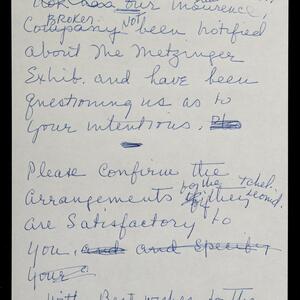 has our Insurence,
BROKER NOT
Company been notified
about The Metzinger
Exhib. and have been
questioning us as to
your intentions.
Please Confirm the
by the
arrangements if they
are Satisfactory to
you, and and specify
your
With Best wishes to the